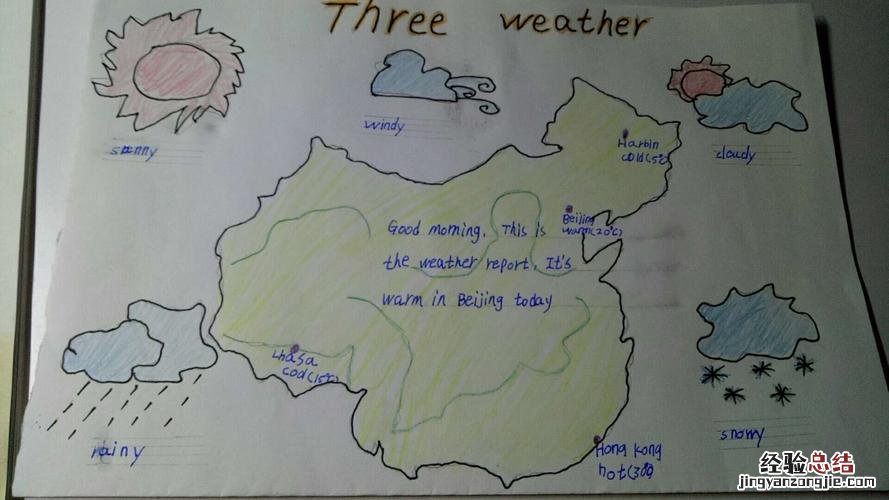 Three weather
sunny
windy
cloudy
Harbin
cold(5℃)
Beijing
warm(20℃)
Good morning. This is
the weather report. It's
warm in Beijing today
Lhasa
cod(15℃)
rainy
snowy
Hong Kong
hot(30
经验总结
jingyanzongjie.com